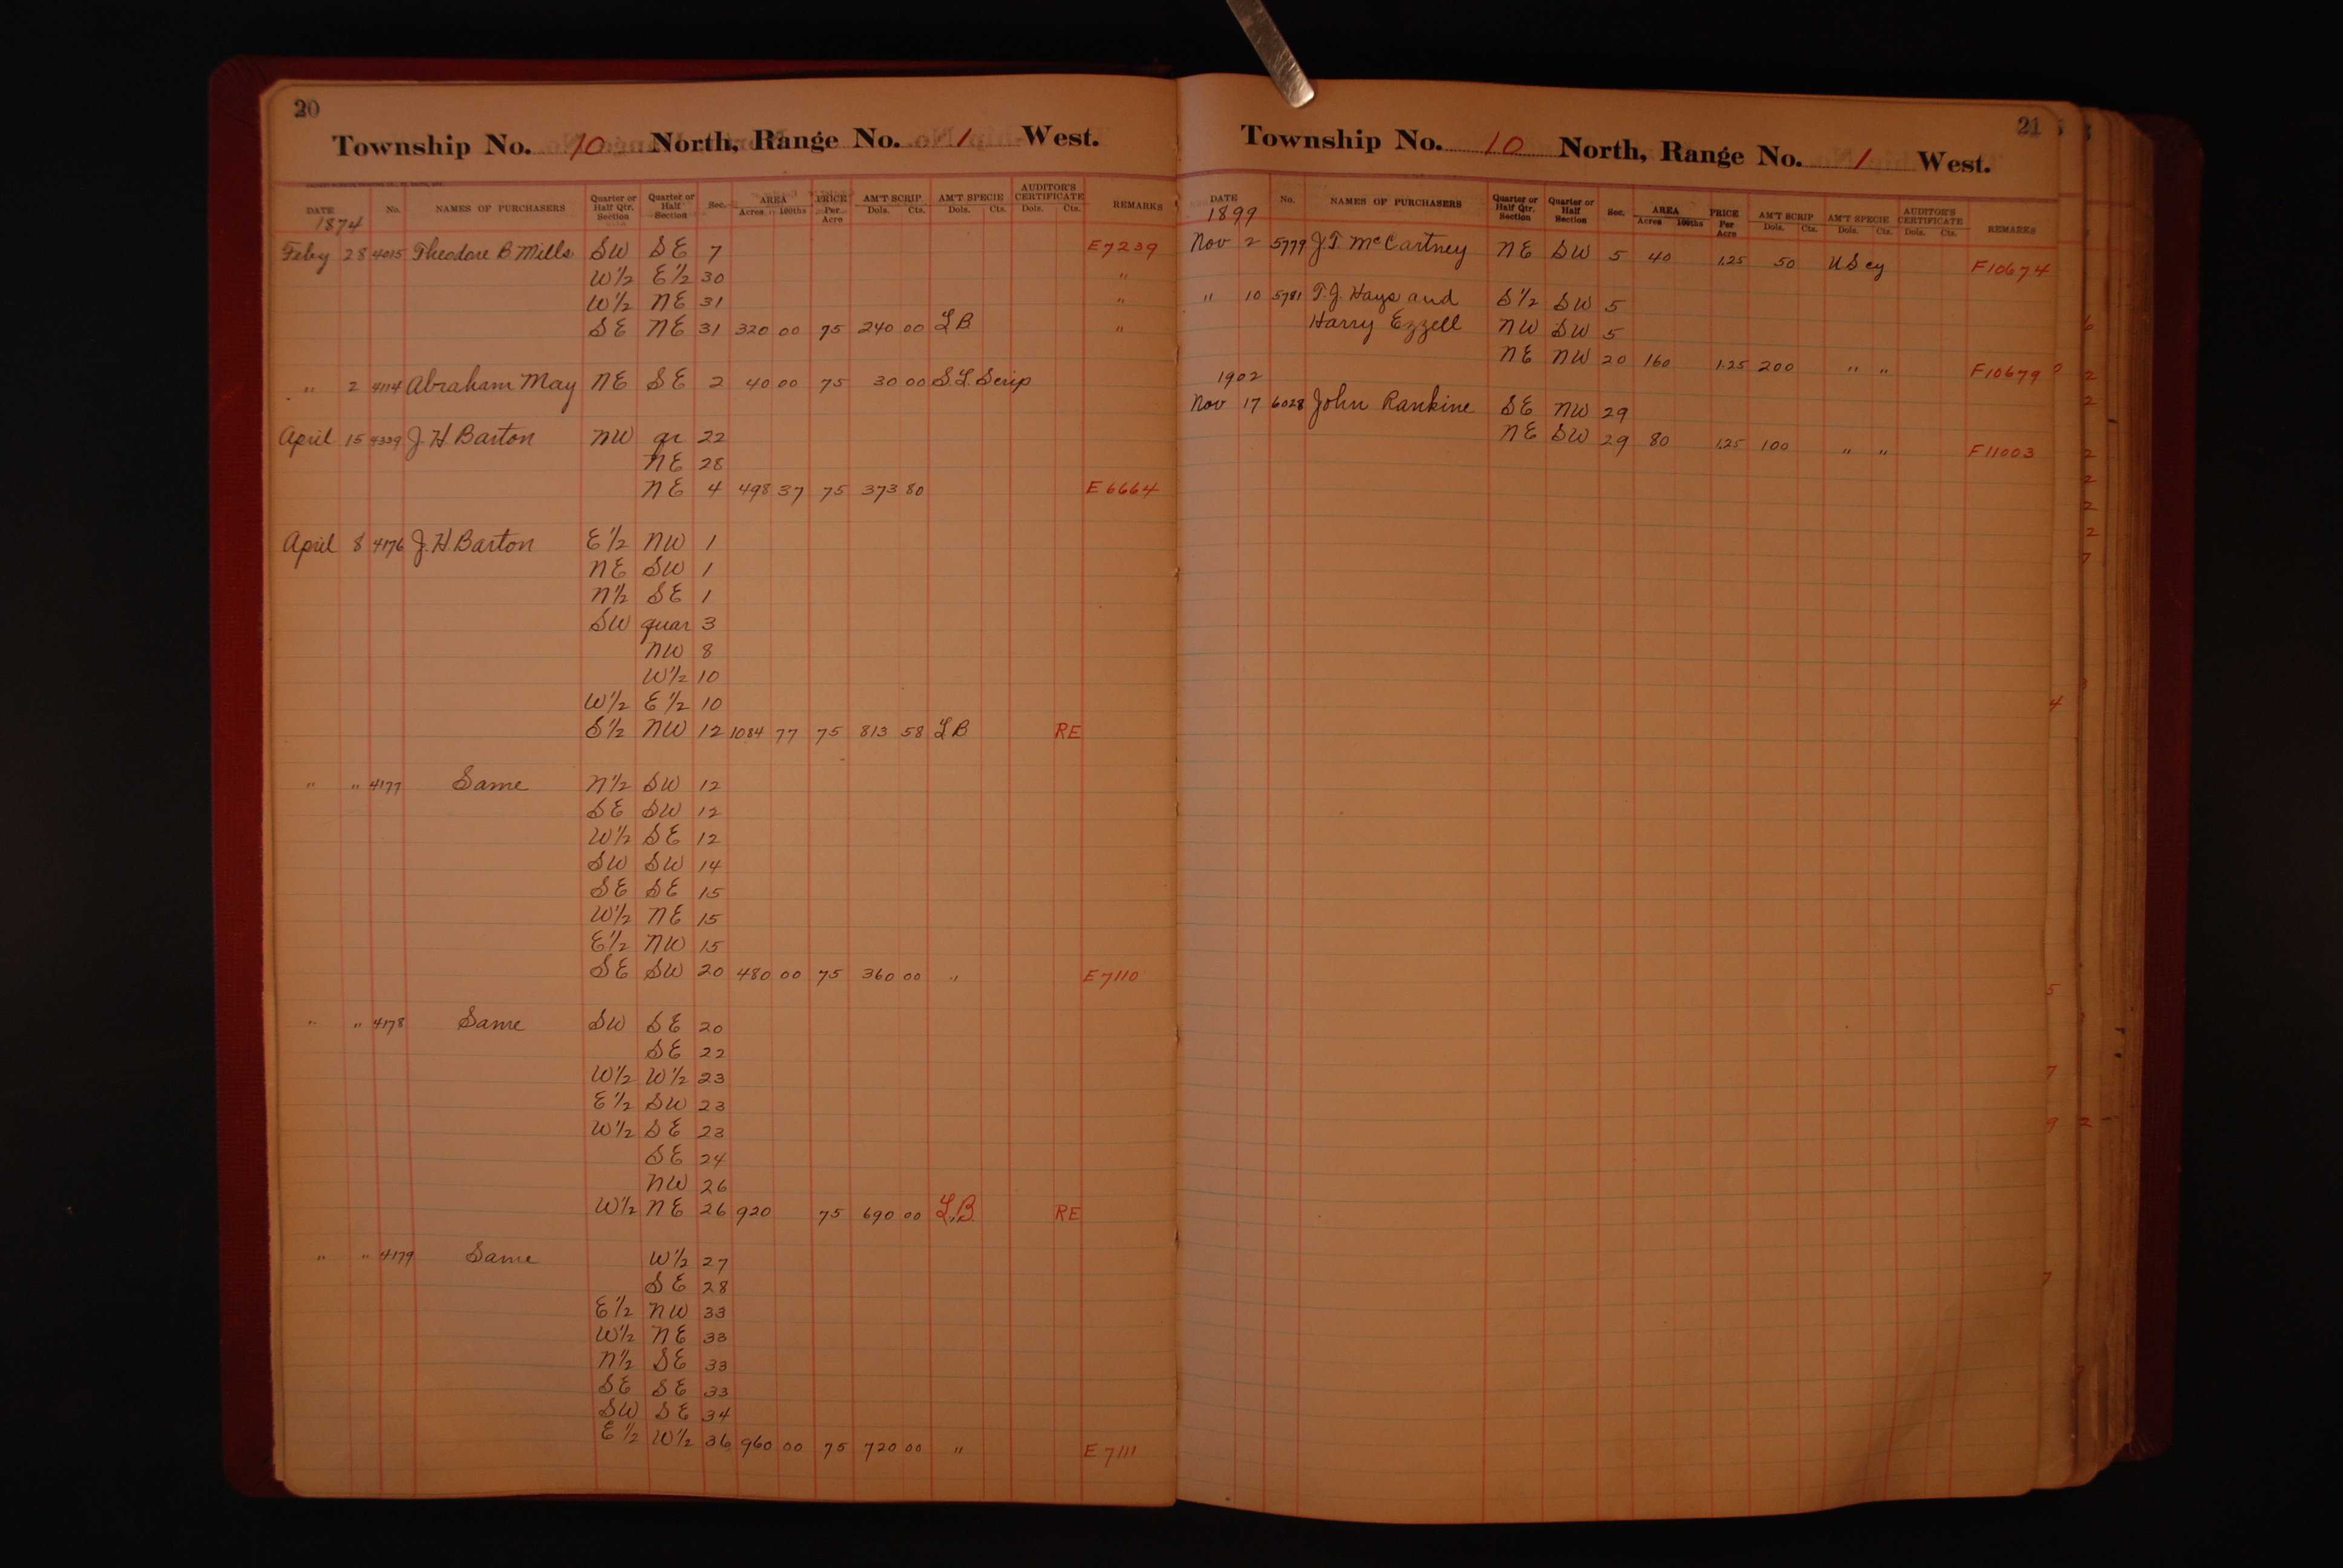 20
Township No. 10 North, Range No. 1 West.
DATE No. NAMES OF PURCHASERS Quarter or Half Qtr. Section Quarter or Half Section Sec. AREA Acres 100ths PRICE Per Acre AM'T SCRIP Dols. Cts. AM'T SPECIE Dols. Cts. AUDITOR'S CERTIFICATE Dols. Cts. REMARKS
1874
Feby 28 4015 Theodore B Mills SW SE 7 E7239
W½ E½ 30 "
W½ NE 31 "
SE NE 31 320 00 75 240 00 LB "
" 2 4114 Abraham May NE SE 2 40 00 75 30 00 S.L. Scrip
April 15 4339 J. H Barton NW qr 22
NE 28
NE 4 498 37 75 373 80 E6664
April 8 4176 J. H Barton E½ NW 1
NE SW 1
N½ SE 1
SW quar 3
NW 8
W½ 10
W½ E½ 10
S½ NW 12 1084 77 75 813 58 LB RE
" " 4177 Same N½ SW 12
SE SW 12
W½ SE 12
SW SW 14
SE SE 15
W½ NE 15
E½ NW 15
SE SW 20 480 00 75 360 00 " E7110
" " 4178 Same SW SE 20
SE 22
W½ W½ 23
E½ SW 23
W½ SE 23
SE 24
NW 26
W½ NE 26 920 75 690 00 L.B. RE
" " 4179 Same W½ 27
SE 28
E½ NW 33
W½ NE 33
N½ SE 33
SE SE 33
SW SE 34
E½ W½ 36 960 00 75 720 00 " E7111
21
Township No. 10 North, Range No. 1 West.
DATE No. NAMES OF PURCHASERS Quarter or Half Qtr. Section Quarter or Half Section Sec. AREA Acres 100ths PRICE Per Acre AM'T SCRIP Dols. Cts. AM'T SPECIE Dols. Cts. AUDITOR'S CERTIFICATE Dols. Cts. REMARKS
1899
Nov 2 5779 J. T. McCartney NE SW 5 40 1.25 50 US cy F10674
" 10 5781 T. J. Hays and S½ SW 5
Harry Ezzell NW SW 5
NE NW 20 160 1.25 200 " " F10679
1902
Nov 17 6028 John Rankine SE NW 29
NE SW 29 80 1.25 100 " " F11003